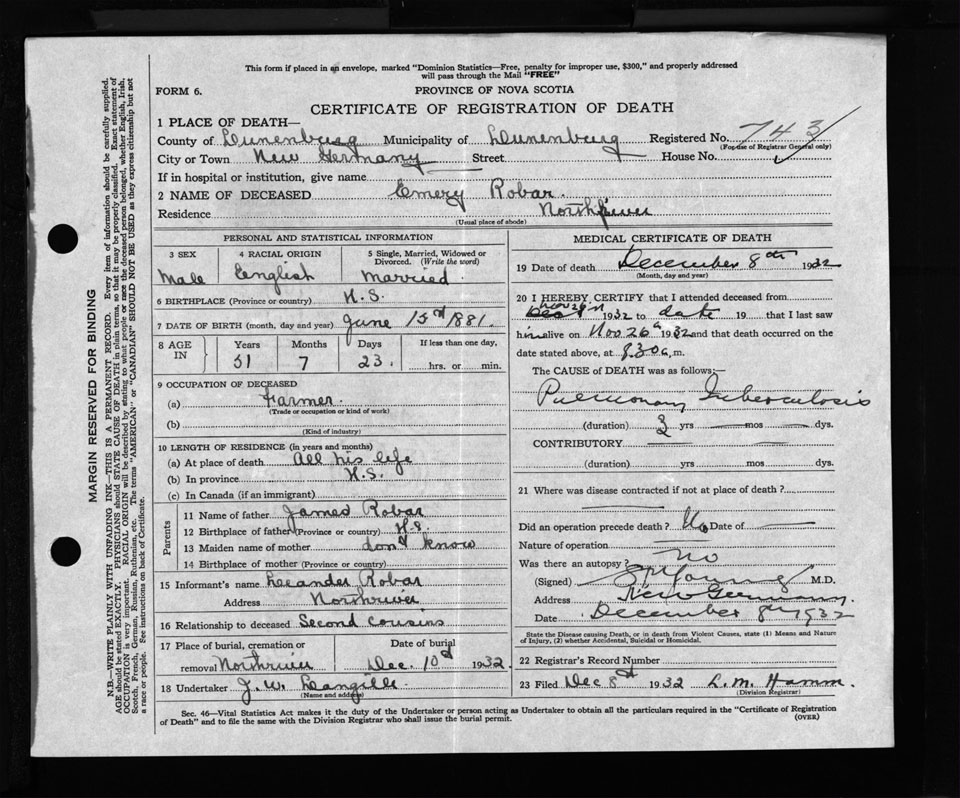 This form if placed in an envelope, marked "Dominion Statistics—Free, penalty for improper use, $300," and properly addressed
will pass through the Mail "FREE"
FORM 6.
PROVINCE OF NOVA SCOTIA
CERTIFICATE OF REGISTRATION OF DEATH
1 PLACE OF DEATH—
County of Lunenburg Municipality of Lunenburg Registered No. 743
(For use of Registrar General only)
City or Town New Germany Street House No.
If in hospital or institution, give name
2 NAME OF DECEASED Emery Robar.
Residence Northriver
(Usual place of abode)
PERSONAL AND STATISTICAL INFORMATION
3 SEX 4 RACIAL ORIGIN 5 Single, Married, Widowed or Divorced. (Write the word)
Male English Married
6 BIRTHPLACE (Province or country) N.S.
7 DATE OF BIRTH (month, day and year) June 15th 1881.
8 AGE IN Years Months Days If less than one day,
51 7 23 hrs. or min.
9 OCCUPATION OF DECEASED
(a) Farmer.
(Trade or occupation or kind of work)
(b)
(Kind of industry)
10 LENGTH OF RESIDENCE (in years and months)
(a) At place of death All his life
(b) In province N.S.
(c) In Canada (if an immigrant)
Parents
11 Name of father James Robar
12 Birthplace of father (Province or country) N.S.
13 Maiden name of mother don't know
14 Birthplace of mother (Province or country)
15 Informant's name Leander Robar
Address Northriver
16 Relationship to deceased Second cousins
17 Place of burial, cremation or removal Northriver Date of burial Dec. 10th 1932.
18 Undertaker J. W. Langille.
(Name and address)
MEDICAL CERTIFICATE OF DEATH
19 Date of death December 8th 1932
(Month, day and year)
20 I HEREBY CERTIFY that I attended deceased from
Nov 26th 1932 to date 19 that I last saw
him alive on Nov. 26th 1932 and that death occurred on the
date stated above, at 8.30 a.m.
The CAUSE of DEATH was as follows:—
Pulmonary Tuberculosis
(duration) yrs mos dys.
CONTRIBUTORY
(duration) yrs mos dys.
21 Where was disease contracted if not at place of death?
Did an operation precede death? No Date of
Nature of operation
Was there an autopsy? no
(Signed) M.D.
Address New Germany.
Date December 8th 1932
State the Disease causing Death, or in death from Violent Causes, state (1) Means and Nature
of Injury, (2) whether Accidental, Suicidal or Homicidal.
22 Registrar's Record Number
23 Filed Dec 8th 1932 L. M. Hamm.
(Division Registrar)
Sec. 46—Vital Statistics Act makes it the duty of the Undertaker or person acting as Undertaker to obtain all the particulars required in the "Certificate of Registration
of Death" and to file the same with the Division Registrar who shall issue the burial permit.
(OVER)
MARGIN RESERVED FOR BINDING
N.B.—WRITE PLAINLY WITH UNFADING INK—THIS IS A PERMANENT RECORD. Every item of information should be carefully supplied.
AGE should be stated EXACTLY. PHYSICIANS should STATE CAUSE OF DEATH in plain terms, so that it may be properly classified. Exact statement of
OCCUPATION is very important. RACIAL ORIGIN will be described by stating to what people or race the deceased person belonged, whether English, Irish,
Scotch, French, German, Russian, Ruthenian, etc. The terms "AMERICAN" or "CANADIAN" SHOULD NOT BE USED as they express citizenship but not
a race or people. See instructions on back of Certificate.